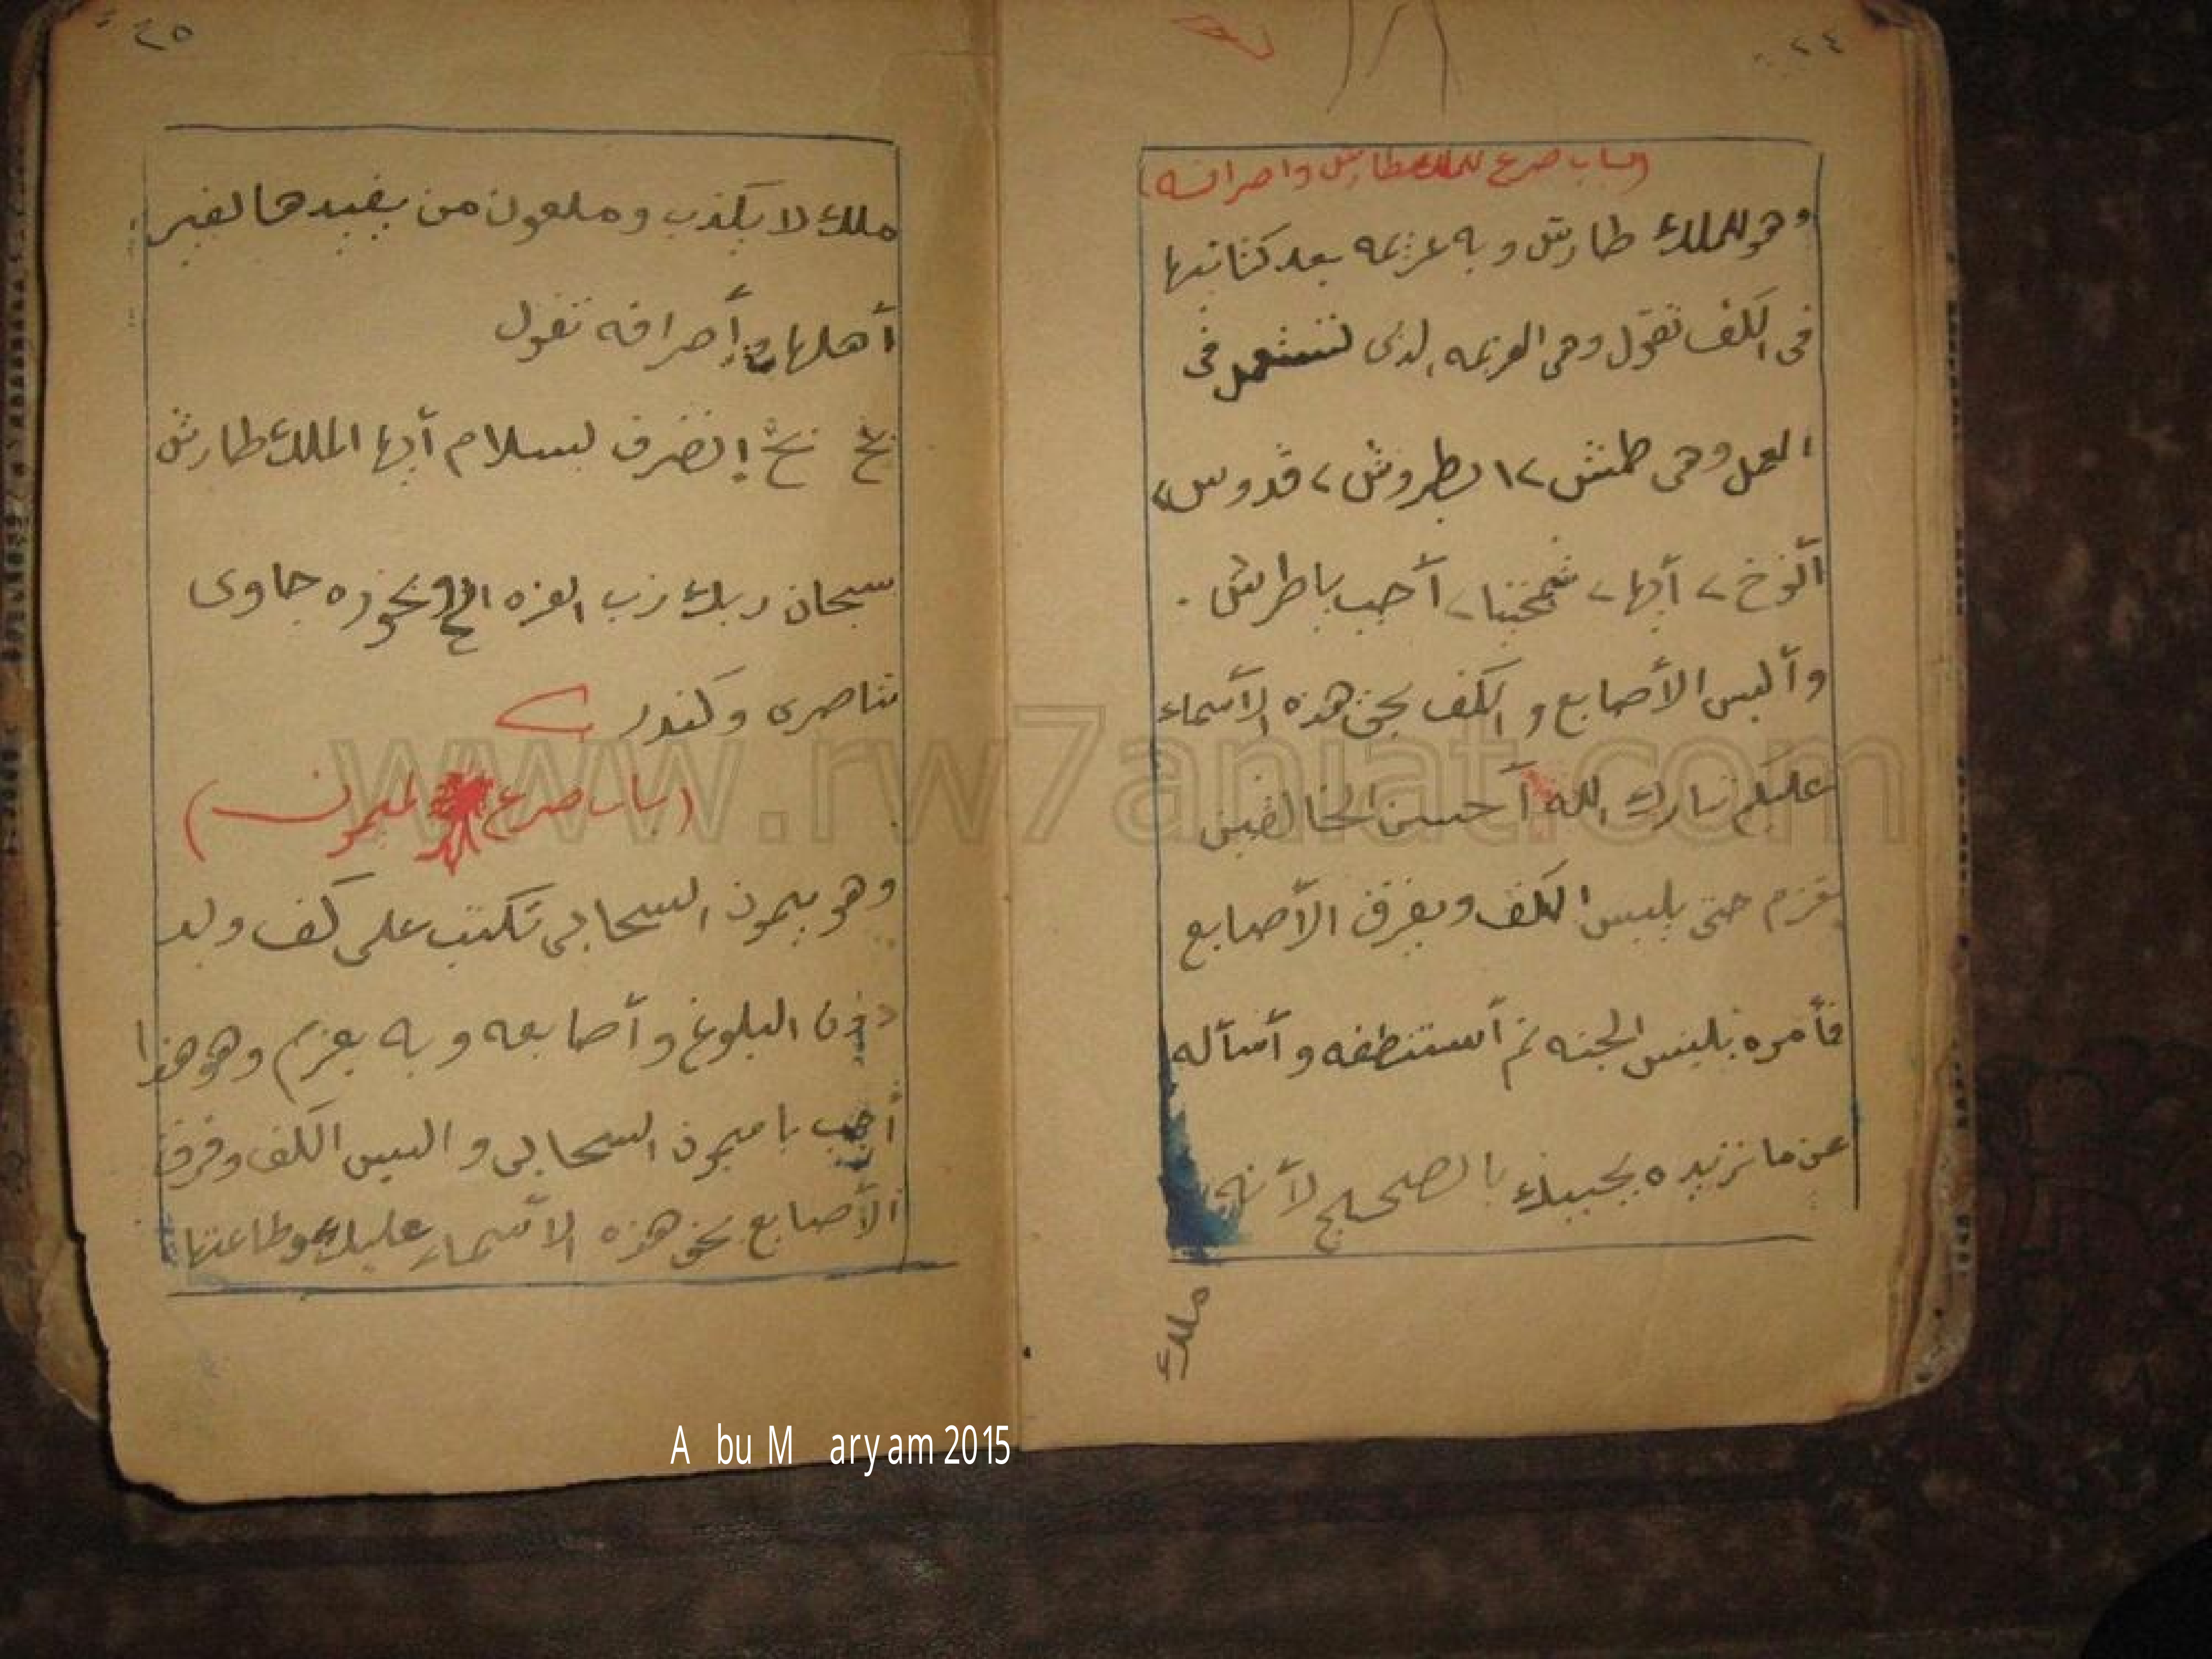 ٢٤
(باب صرع للملك طارش واصرافه)
وهو للملك طارش وبه عزيمه بعد كتابتها
فى الكف تقول وهى العزيمه الذى تستعمل فى
العمل وهى طمش ٢١ بطروش ٢ قدوس ٢
ألوخ ٢ أيها ٢ شمخيثا ٢ أجب ياطرش
وألبس الأصابع والكف بحق هذه الأسماء
عليكم تبارك الله أحسن الخالقين
تعزم حتى يلبس الكف ويفرق الأصابع
فأمره بلبس الجثه ثم أستنطقه وأسأله
عن ما تريده يجيبك بالصحيح لأنه
ملك
٢٥
ملك لا يكذب وملعون من يفيدها لغير
أهلها وإصرافه تقول
إنصرف بسلام أيها الملك طارش
سبحان ربك رب العزه الخ وبخوره جاوى
تناصرى وكندر
(باب صرع لميمون)
وهو ميمون السحابى تكتب على كف ولد
دون البلوغ وأصابعه وبه يعزم وهو هذا
أجب يا ميمون السحابى والبس الكف وفرق
الأصابع بحق هذه الأسماء عليك وطاعتها
www.rw7aniat.com
A bu M aryam 2015